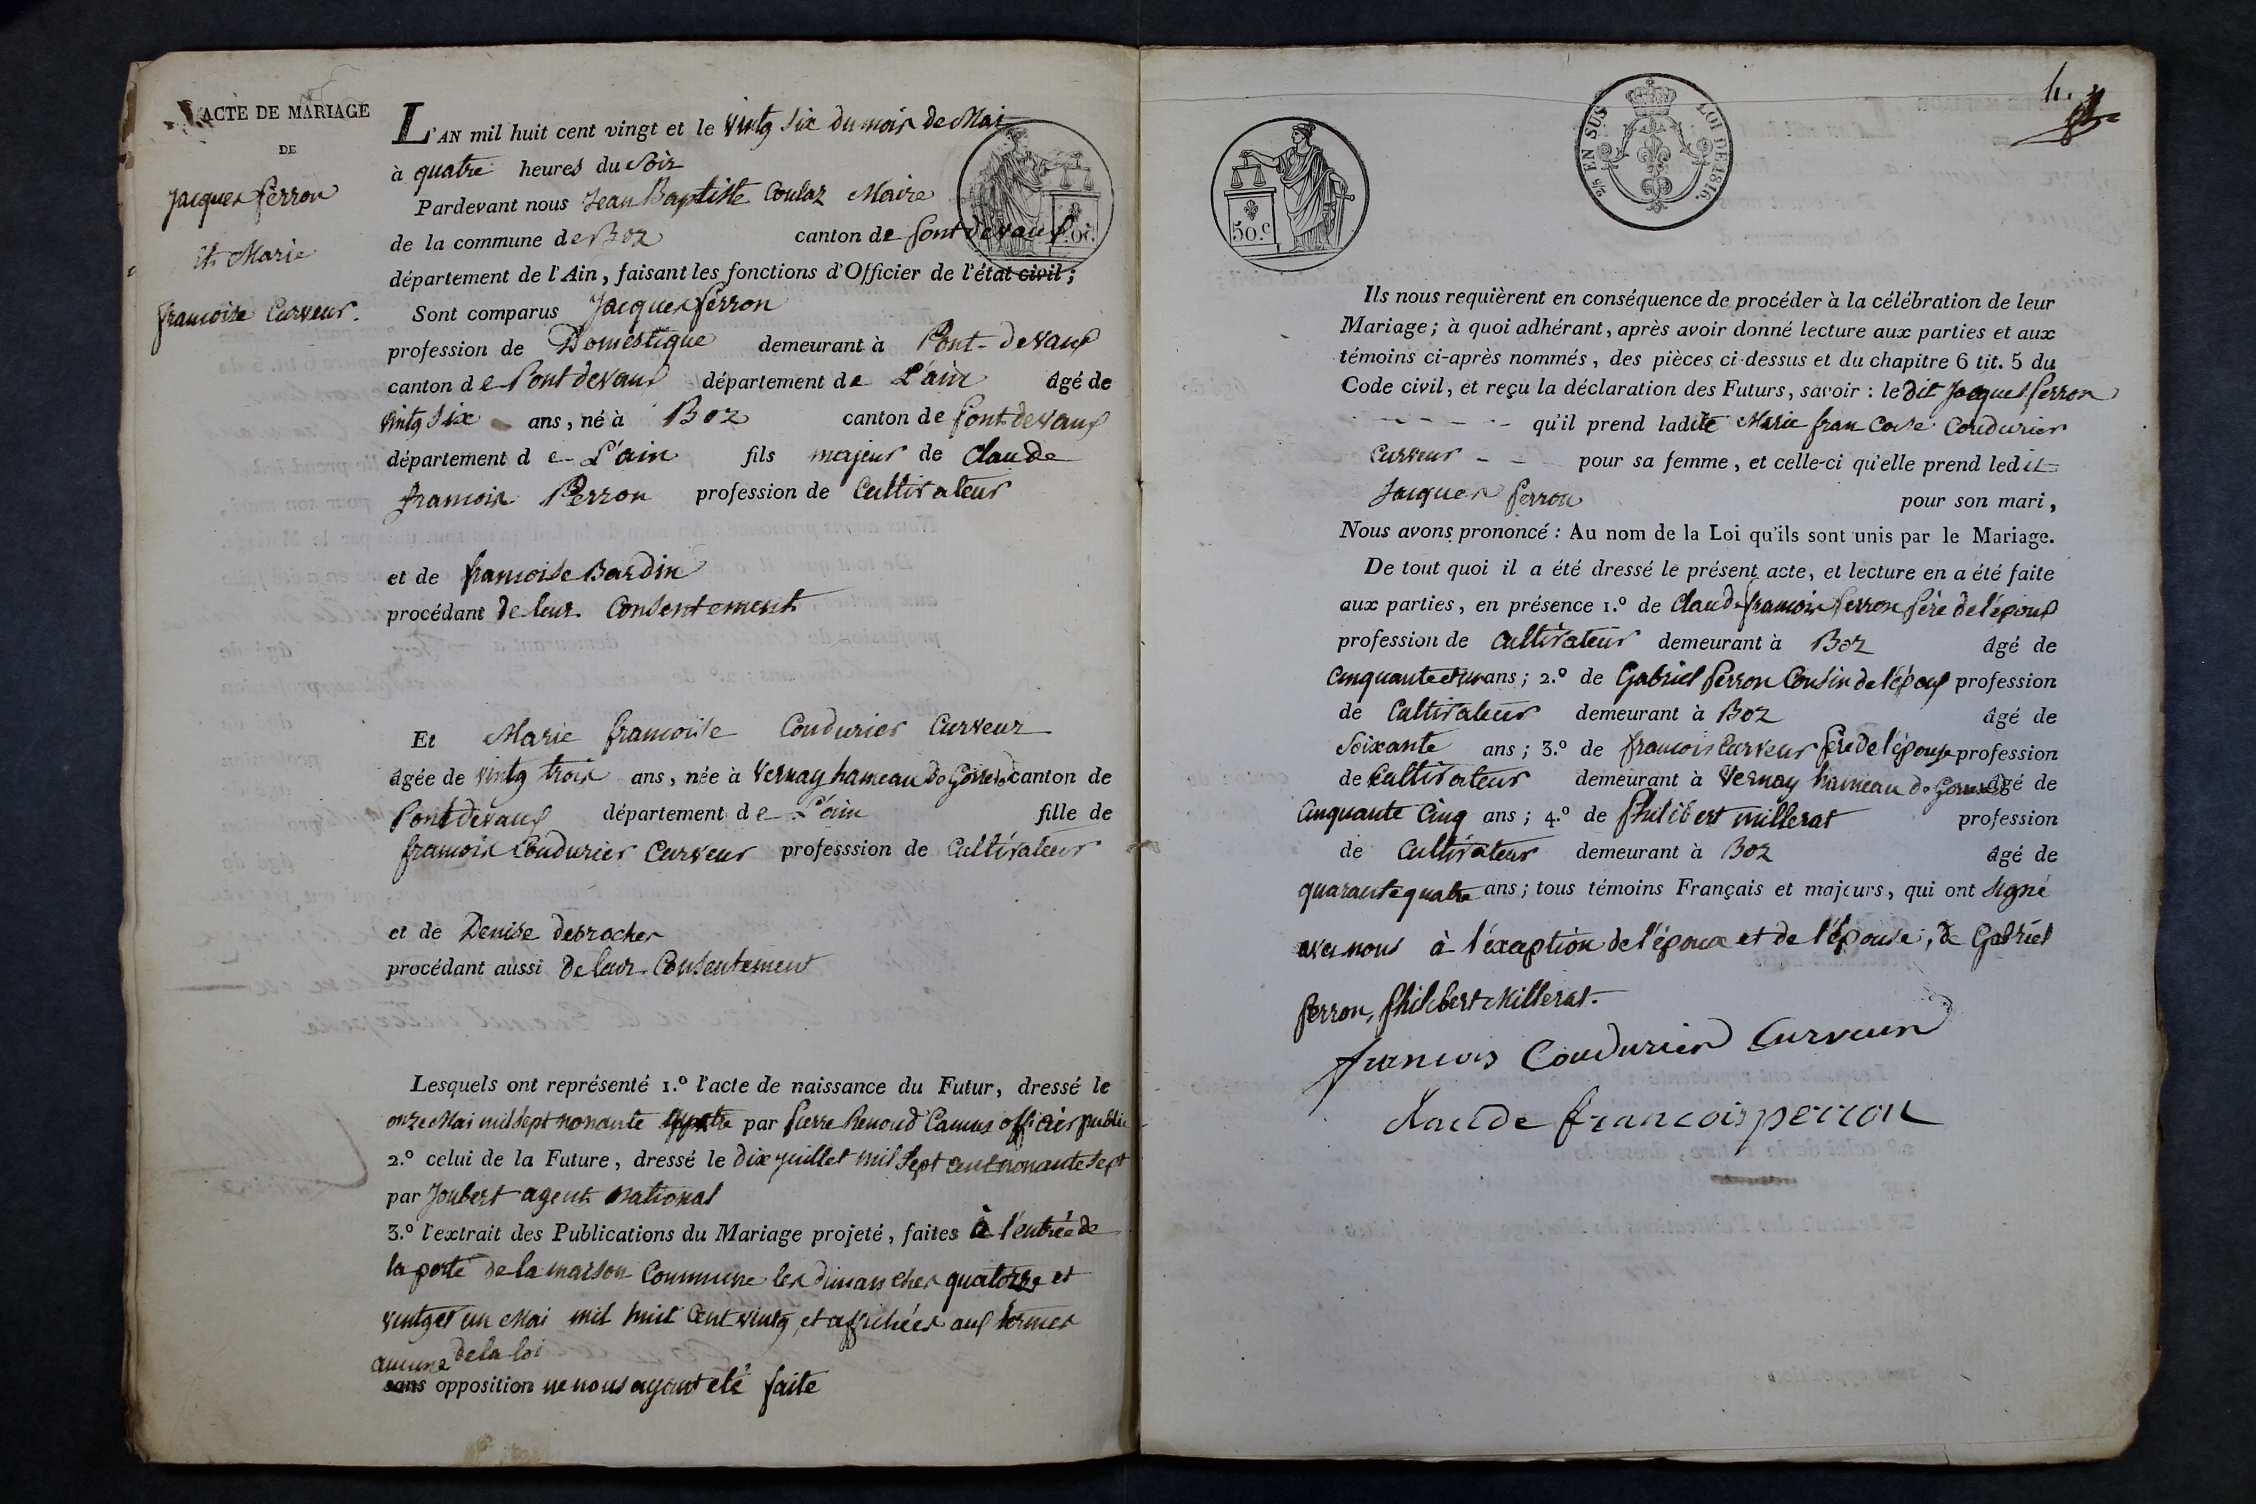 ACTE DE MARIAGE
DE
Jacques perron
et Marie
francoise Curveur.
L'AN mil huit cent vingt et le vintg Six du mois de Mai
à quatre heures du Soir
Pardevant nous Jean Baptiste Coulaz Maire
de la commune de Boz canton de pontdevaux
département de l'Ain, faisant les fonctions d'Officier de l'état civil;
Sont comparus Jacques perron
profession de Domestique demeurant à Pont-devaux
canton de Pontdevaux département de L'ain âgé de
vintg Six ans, né à Boz canton de pontdevaux
département de L'ain fils majeur de Claude
francois Perron profession de Cultivateur
et de francoise Bardin
procédant de leur Consentement
Et Marie francoise Coudurier Curveur
âgée de vintg trois ans, née à Vernay hameau de canton de
Pontdevaux département de L'ain fille de
francois Coudurier Curveur professsion de Cultivateur
et de Denise desroches
procédant aussi de leur Consentement
Lesquels ont représenté 1.º l'acte de naissance du Futur, dressé le
onze Mai mil Sept nonante par pierre Renoud Camus officier public
2.º celui de la Future, dressé le dix juillet mil Sept cent nonante Sept
par Joubert agent national
3.º l'extrait des Publications du Mariage projeté, faites à l'entrée de
la porte de la maison Commune les dimanches quatorze et
vintget un Mai mil huit Cent vintg et affichées aux termes
de la loi
aucune
sans opposition ne nous ayant eté faite
50.c
2/5 EN SUS
LOI DE 1816.
Ils nous requièrent en conséquence de procéder à la célébration de leur
Mariage; à quoi adhérant, après avoir donné lecture aux parties et aux
témoins ci-après nommés, des pièces ci-dessus et du chapitre 6 tit. 5 du
Code civil, et reçu la déclaration des Futurs, savoir: le dit Jacques perron
qu'il prend ladite Marie francoise Coudurier
Curveur pour sa femme, et celle-ci qu'elle prend ledit
Jacques perron pour son mari,
Nous avons prononcé: Au nom de la Loi qu'ils sont unis par le Mariage.
De tout quoi il a été dressé le présent acte, et lecture en a été faite
aux parties, en présence 1.º de Claude francois perron père de l'époux
profession de Cultivateur demeurant à Boz âgé de
Cinquante et un ans; 2.º de Gabriel perron Cousin de l'époux profession
de Cultivateur demeurant à Boz âgé de
Soixante ans; 3.º de francois Curveur père de l'épouse profession
de Cultivateur demeurant à Vernay hameau de âgé de
Cinquante Cinq ans; 4.º de philibert millerat profession
de Cultivateur demeurant à Boz âgé de
quarante quatre ans; tous témoins Français et majeurs, qui ont Signé
avec nous à l'éxception de l'époux et de l'épouse, de Gabriel
perron, philibert Millerat.
francois Coudurier Curveur
claude francois perron